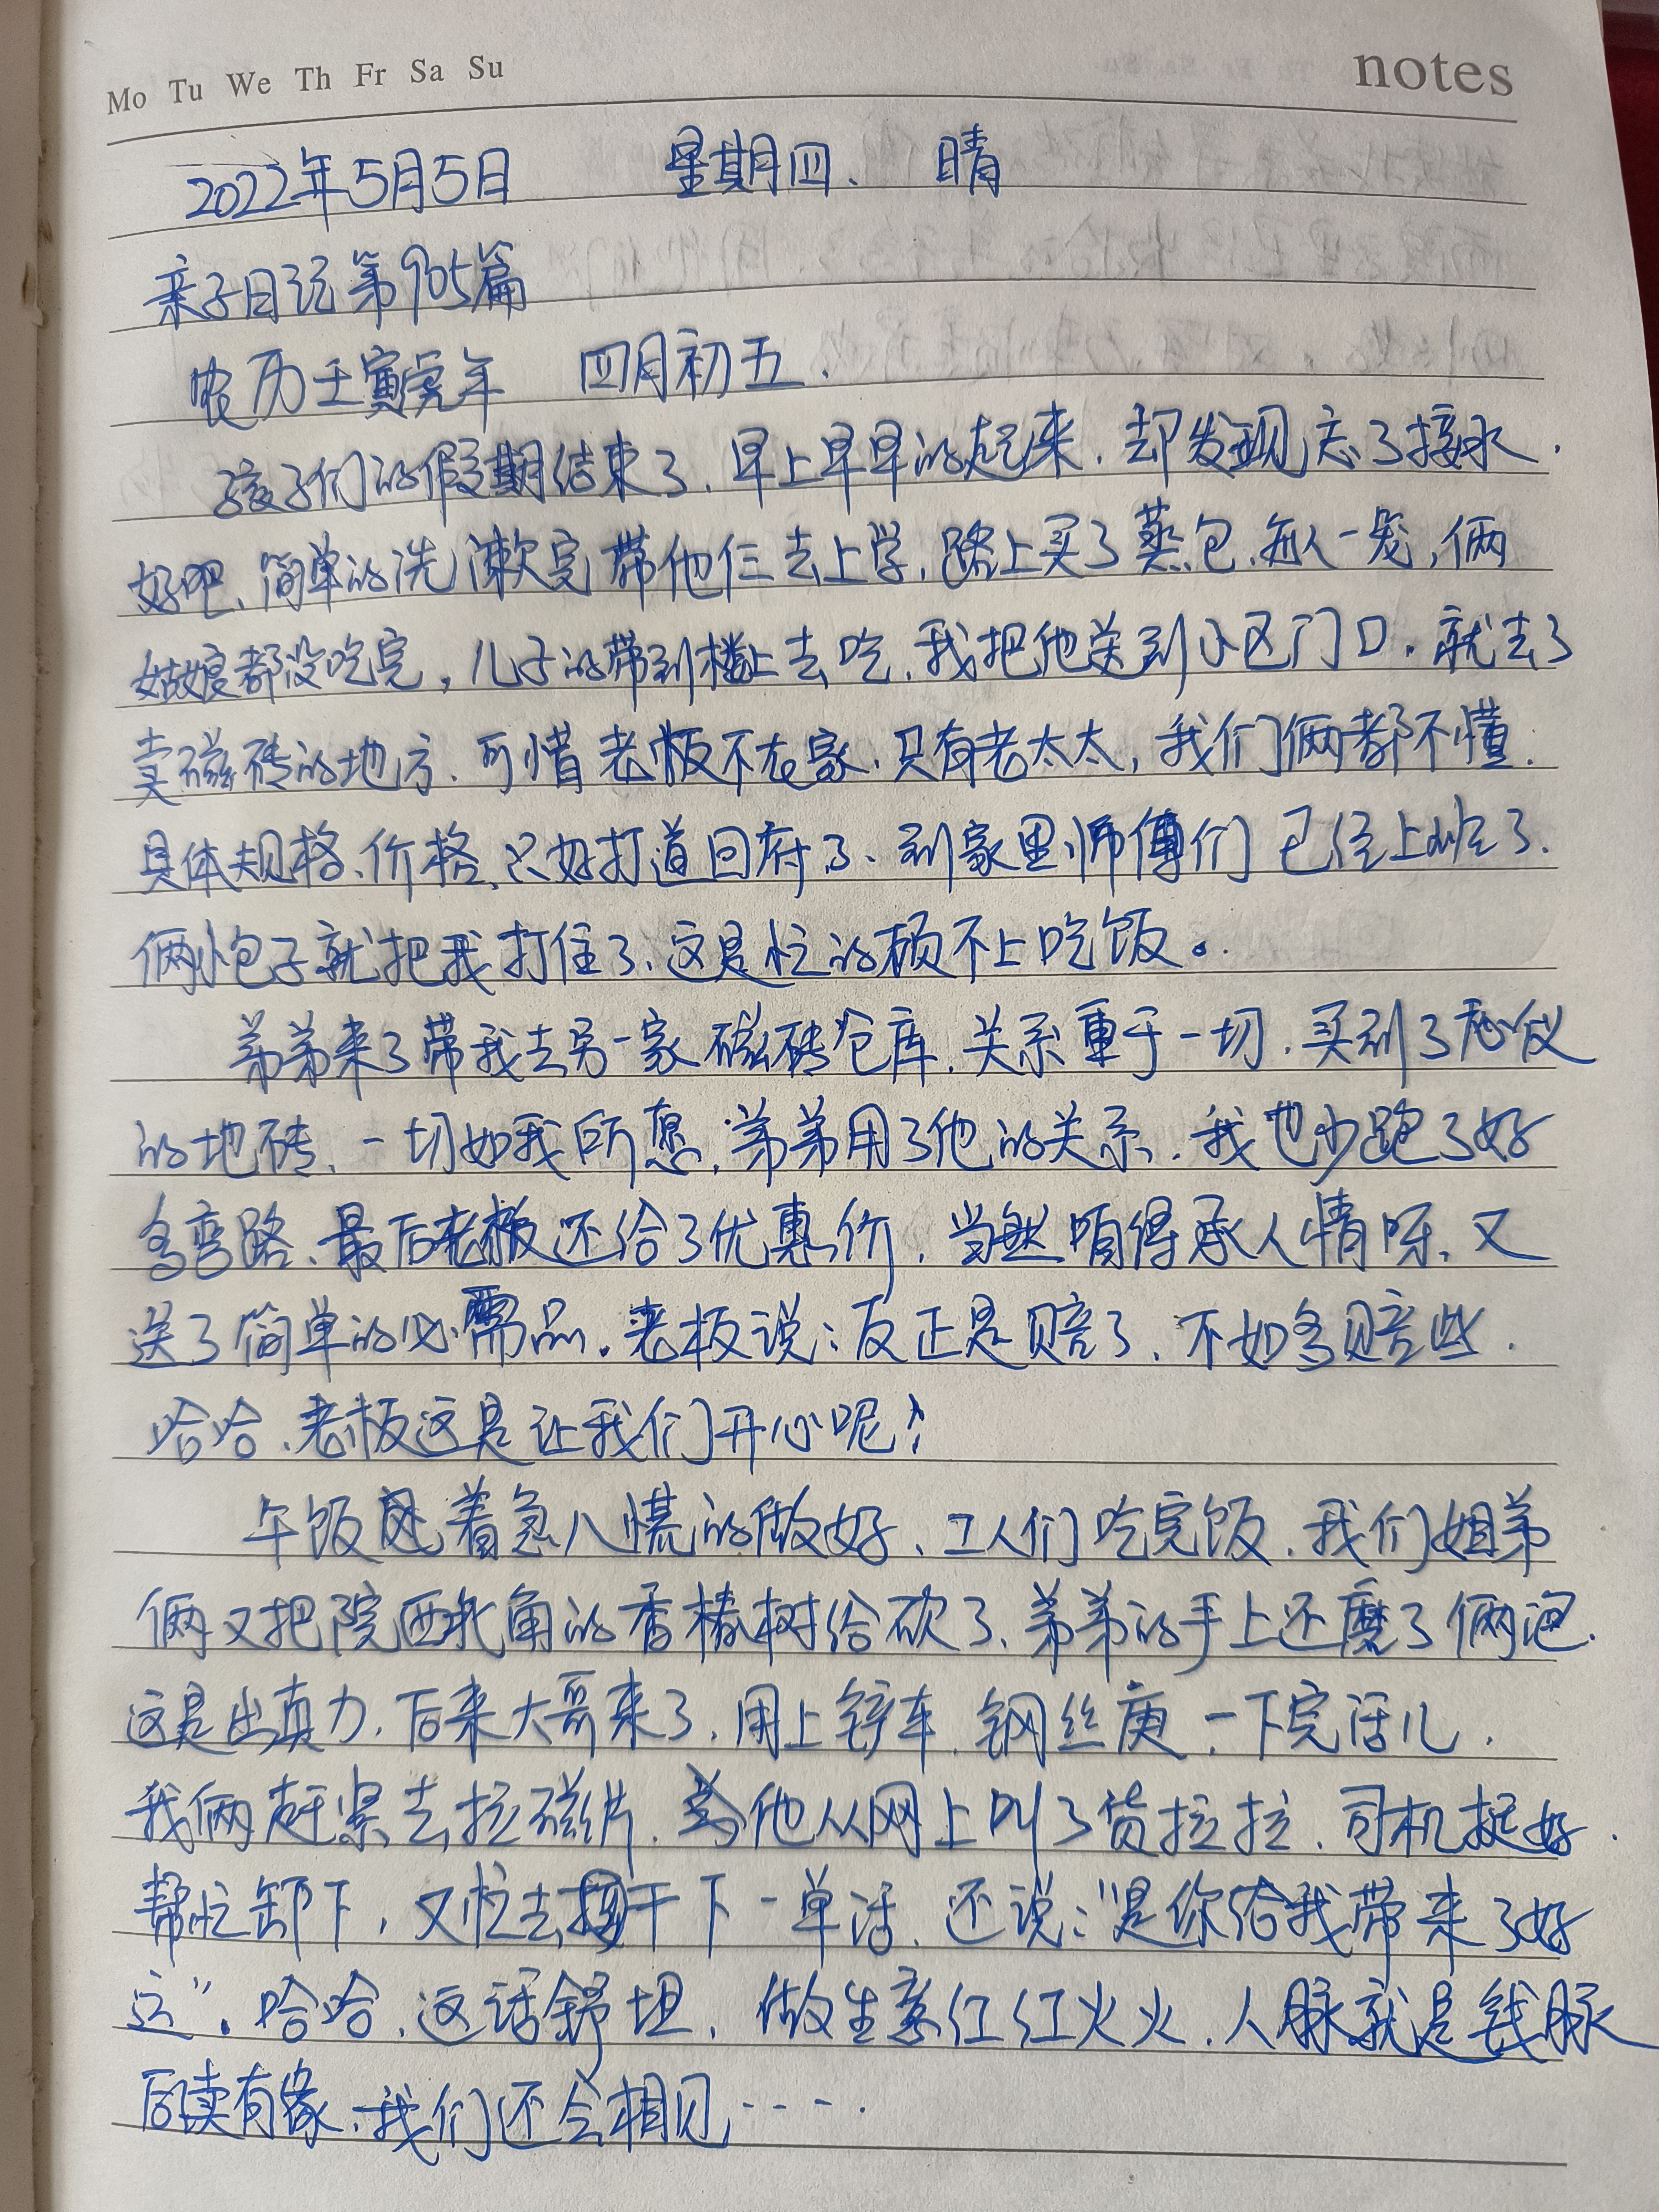 Mo Tu We Th Fr Sa Su
notes
2022年5月5日 星期四、 晴
亲子日记第905篇
农历壬寅虎年 四月初五.
孩子们的假期结束了、早上早早的起来、却发现忘了接水.
好吧、简单的洗漱完带他仨去上学、路上买了蒸包、每人一笼，俩
姑娘都没吃完，儿子的带到楼上去吃、我把他送到小区门口、就去了
卖磁砖的地方、可惜老板不在家、只有老太太，我们俩都不懂.
具体规格、价格、只好打道回府了、到家里师傅们已经上岗了.
俩小包子就把我打住了、这是忙的顾不上吃饭。
弟弟来了带我去另一家磁砖仓库、关系重于一切、买到了心仪
的地砖、一切如我所愿、弟弟用了他的关系、我也少跑了好
多弯路、最后老板还给了优惠价、当然咱得承人情呀、又
送了简单的必需品。老板说：反正是赔了、不如多赔些.
哈哈、老板这是让我们开心呢！
午饭是着急八慌的做好、工人们吃完饭、我们姐弟
俩又把院西北角的香椿树给砍了、弟弟的手上还磨了俩泡.
这是出真力、后来大哥来了、用上铲车、钢丝 、一下完活儿.
我俩赶紧去拉磁片、他从网上叫了货拉拉、司机挺好.
帮忙卸下，又忙去接干下一单活、还说：“是你给我带来了好
运”。哈哈、这话舒坦、做生意红红火火、人脉就是钱脉
后续有缘、我们还会相见·····